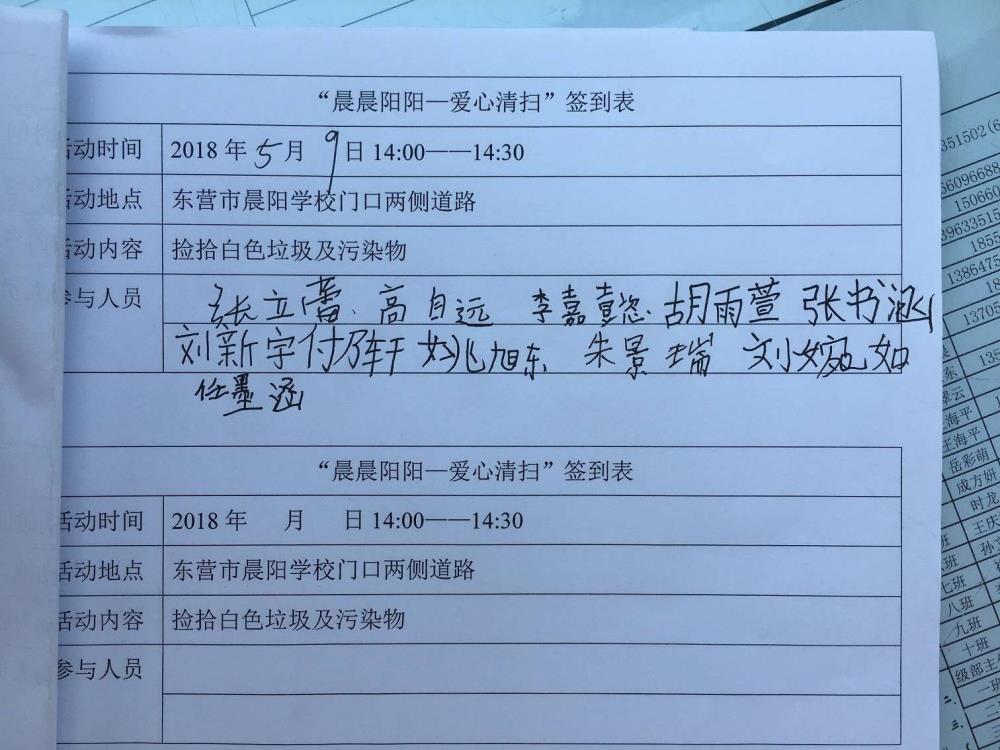 “晨晨阳阳—爱心清扫”签到表
活动时间 2018 年 5 月 9 日 14:00——14:30
活动地点 东营市晨阳学校门口两侧道路
活动内容 捡拾白色垃圾及污染物
参与人员 张立蕾、高自远 李嘉懿 胡雨萱 张书涵
刘新宇 付乃轩 姚旭东 朱景瑞 刘婉如
任墨涵
“晨晨阳阳—爱心清扫”签到表
活动时间 2018 年 月 日 14:00——14:30
活动地点 东营市晨阳学校门口两侧道路
活动内容 捡拾白色垃圾及污染物
参与人员
351502(6
66096688
150660
39633515
1855
1386475
18
13705
135
东
翠云
海平
王海平
岳彩萌
成方妍
时龙
王庆
七班
八班
九班
十班
级部主
一班
二
三